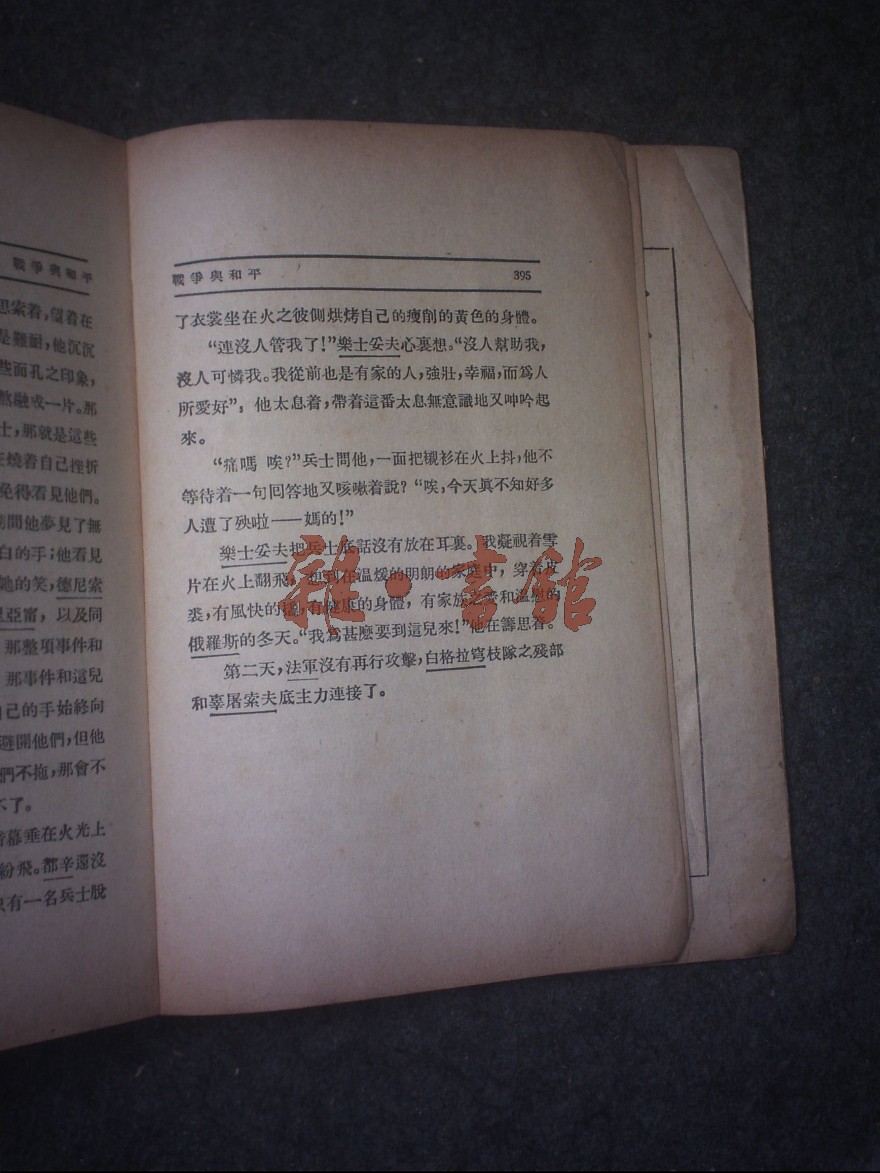 戰爭與和平
思索着，望着在
是難耐，他沉沉
些面孔之印象，
熬融成一片。那
士，那就是這些
燒着自己挫折
免得看見他們。
期間他夢見了無
白的手；他看見
她的笑，德尼索
里亞甯，以及同
那整項事件和
那事件和這兒
自己的手始終向
避開他們，但他
們不拖，那會不
不了。
幕垂在火光上
紛飛。都辛還沒
只有一名兵士脫
戰爭與和平 395
了衣裳坐在火之彼側烘烤自己的瘦削的黃色的身體。
“連沒人管我了！”樂士妥夫心裏想。“沒人幫助我，
沒人可憐我。我從前也是有家的人，強壯，幸福，而爲人
所愛好”，他太息着，帶着這番太息無意識地又呻吟起
來。
“痛嗎 唉？”兵士問他，一面把襯衫在火上抖，他不
等待着一句回答地又咳嗽着說？“唉，今天眞不知好多
人遭了殃啦——媽的！”
樂士妥夫把兵士底話沒有放在耳裏。我凝視着雪
片在火上翻飛，想到在温煖的明朗的家庭中，穿着皮
裘，有風快的橇，有健康的身體，有家族之愛和温慰的
俄羅斯的冬天。“我爲甚麽要到這兒來！”他在籌思着。
第二天，法軍沒有再行攻擊，白格拉穹枝隊之殘部
和辜屠索夫底主力連接了。
雜·書館